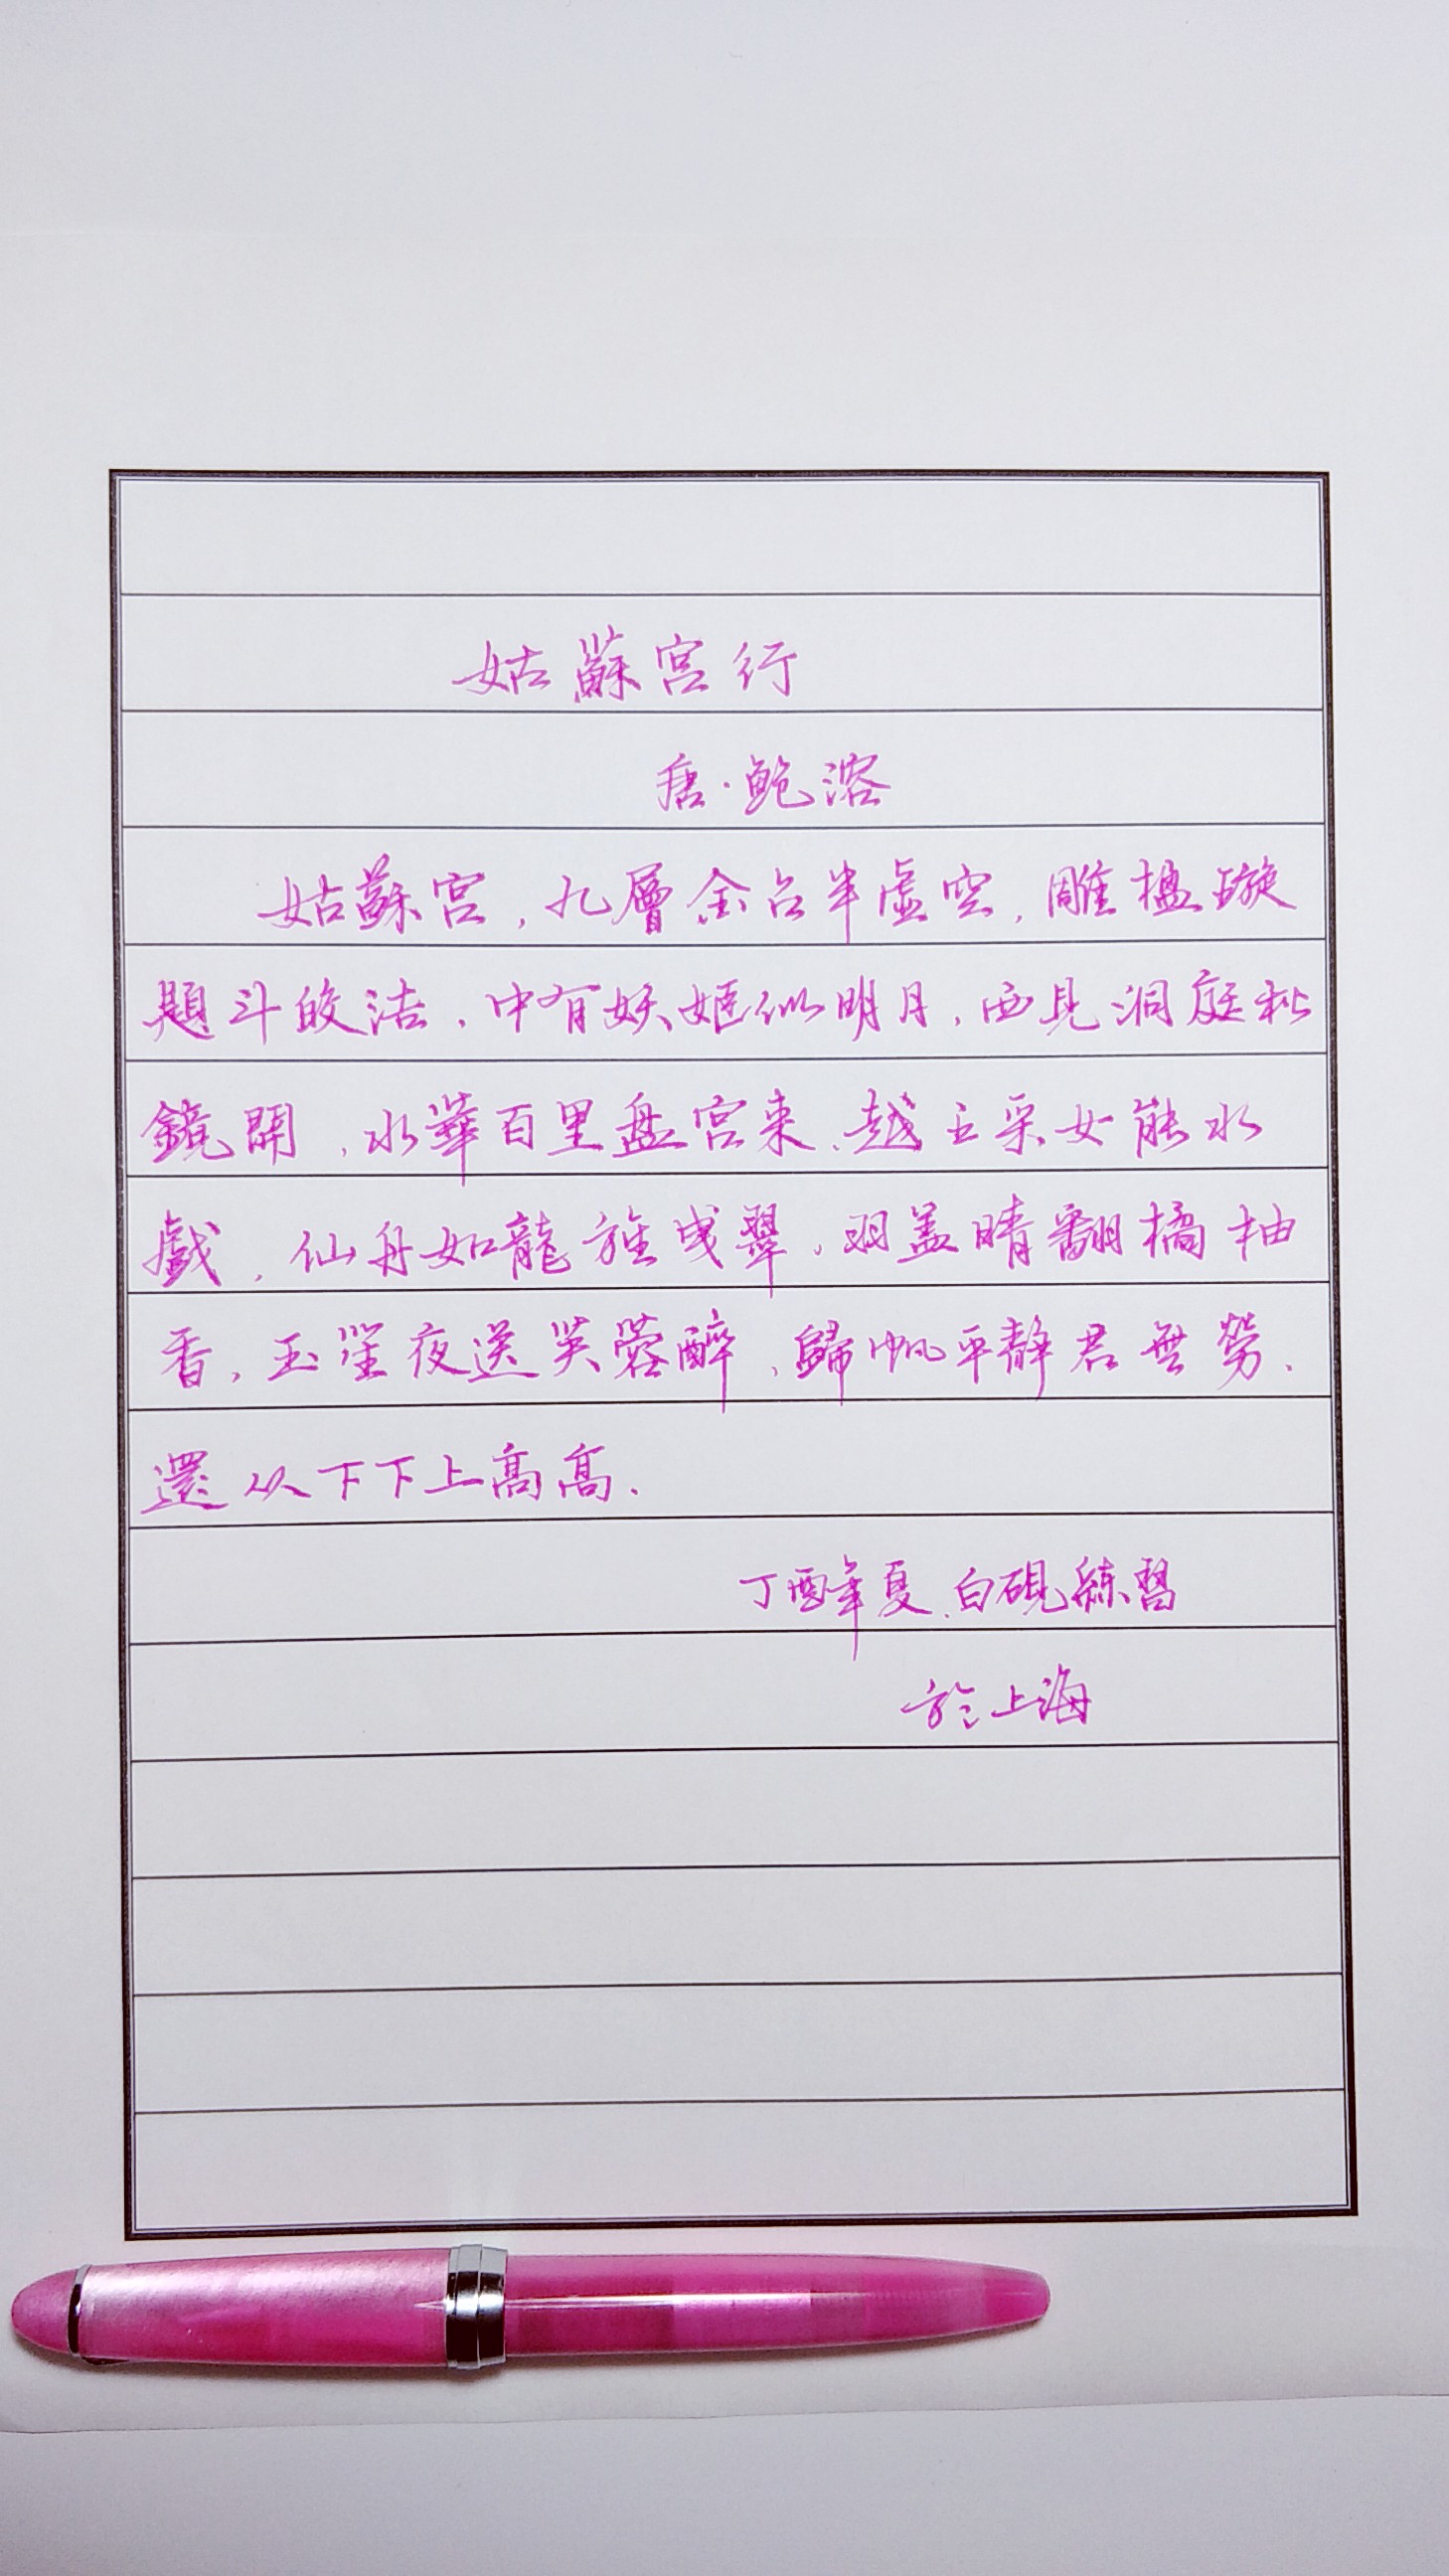 姑蘇宮行
唐·鮑溶
姑蘇宮，九層金台半虛空，雕楹璇
題斗皎潔，中有妖姬似明月，西見洞庭秋
鏡開，水華百里盤宮來，越王采女能水
戲，仙舟如龍旌曳翠，羽蓋晴翻橘柚
香，玉笙夜送芙蓉醉，歸帆平靜君無勞，
還从下下上高高.
丁酉年夏.白硯練習
於上海